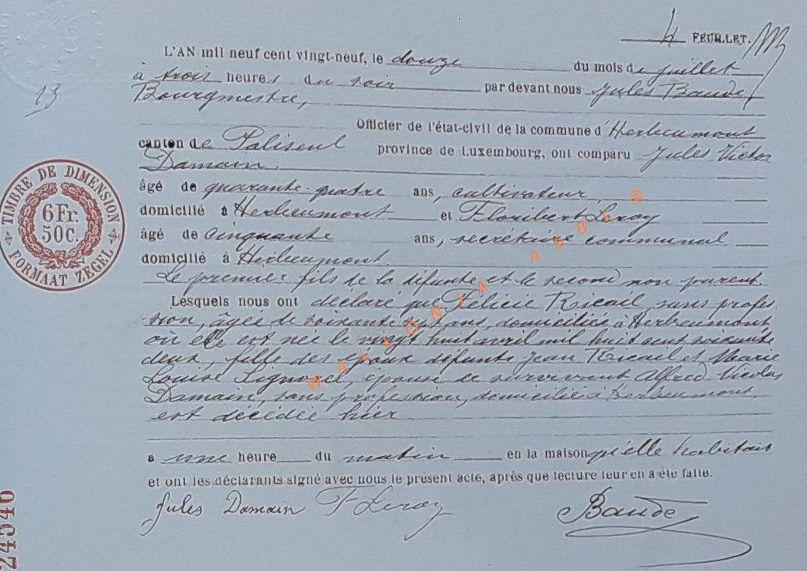 4 FEUILLET.
L'AN mil neuf cent vingt-neuf, le douze du mois de juillet
à trois heures du soir par devant nous Jules Baude,
13
Bourgmestre,
Officier de l'état-civil de la commune d'Herbeumont
canton de Paliseul province de Luxembourg, ont comparu Jules Victor
Damain,
âgé de quarante-quatre ans, cultivateur,
domicilié à Herbeumont et Floribert Leroy
âgé de cinquante ans, secrétaire communal
domicilié à Herbeumont
Le premier fils de la défunte et le second non parent.
Lesquels nous ont déclaré que Félicie Ricail, sans profes
sion, âgée de soixante sept ans, domiciliée à Herbeumont
où elle est née le vingt huit avril mil huit cent soixante
deux, fille des époux défunts Jean Ricail et Marie
Louise, épouse de survivant Alfred Nicolas
Damain, sans profession, domicilié à Herbeumont
est décédée hier
à une heure du matin en la maison qu'elle habitait
et ont les déclarants signé avec nous le présent acte, après que lecture leur en a été faite.
Jules Damain F Leroy Baude
TIMBRE DE DIMENSION
6 Fr.
50 C.
FORMAAT ZEGEL
24546
WALLONIA ASBL ®